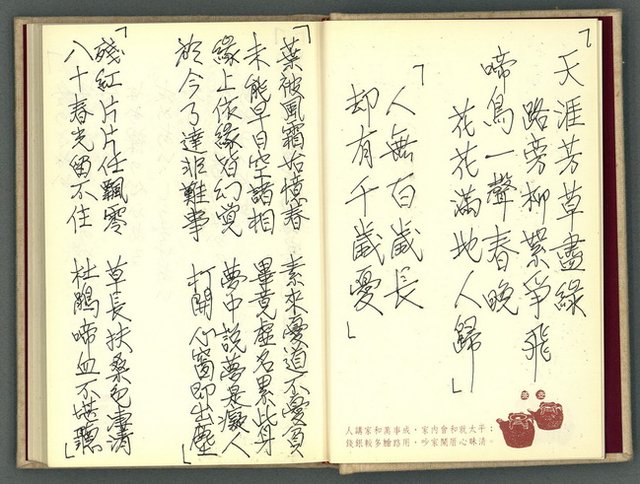 「天涯芳草盡綠
路旁柳絮爭飛
啼鳥一聲春晚
花花滿地人歸」
「人無百歲長
却有千歲憂」
人講家和萬事成，家內會和就太平；
錢銀較多膾路用，吵家鬧厝心昧清。
「葉被風霜始憤春 素來憂道不憂貧
未能早日空諸相 畢竟虛名累此身
緣上依緣皆幻覺 夢中說夢是癡人
於今了達非難事 打開心窗即出塵」
「殘紅片片任飄零 草長扶桑色凄清
八十春光留不住 杜鵑啼血不堪聽」